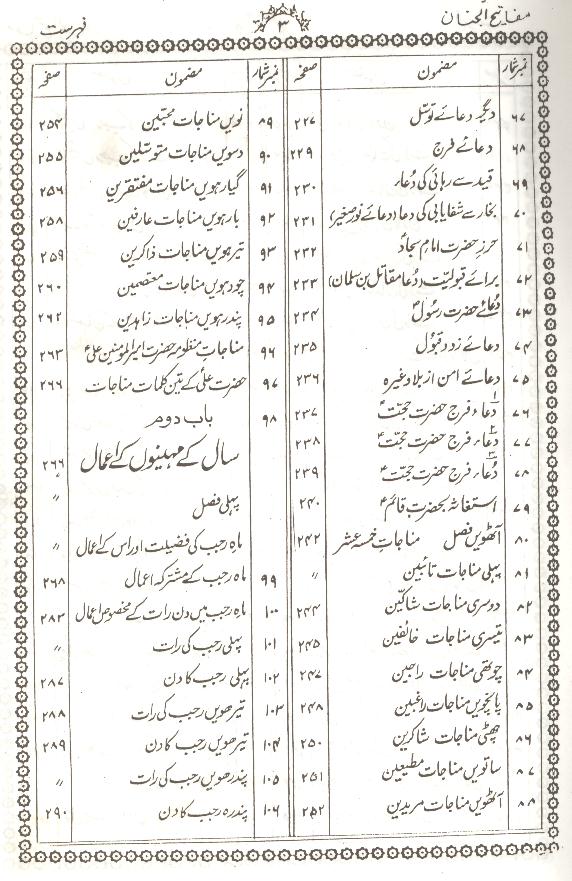 مفاتیح الجنان ۳ فہرست
نمبر شمار مضمون صفحہ
۶۷ دیگر دعائے توسل ۲۲۷
۶۸ دعائے فرج ۲۲۹
۶۹ قید سے رہائی کی دُعار ۲۳۰
۷۰ بخار سے شفایابی کی دعا (دعائے نور صغیر) ۲۳۱
۷۱ حرزِ حضرت امام سجادؑ ۲۳۲
۷۲ برائے قبولیّت (دُعا مقاتل بن سلمان) ۲۳۳
۷۳ دُعائے حضرت رسولؐ ۲۳۴
۷۴ دعائے زود قبول ۲۳۵
۷۵ دعائے امن از بلا وغیرہ ۲۳۶
۷۶ دُعاء فرج حضرت حجتؑ ۱ ۲۳۷
۷۷ دُعاء فرج حضرت حجتؑ ۲ ۲۳۸
۷۸ دُعاء فرج حضرت حجتؑ ۳ ۲۳۹
۷۹ استغاثہ بحضرت قائمؑ ۲۴۰
۸۰ آٹھویں فصل مناجات خمسہ عشر ۲۴۲
۸۱ پہلی مناجات تائبین 〃
۸۲ دوسری مناجات شاکین ۲۴۴
۸۳ تیسری مناجات خائفین ۲۴۵
۸۴ چوتھی مناجات راجین ۲۴۷
۸۵ پانچویں مناجات راغبین ۲۴۸
۸۶ چھٹی مناجات شاکرین ۲۵۰
۸۷ ساتویں مناجات مطیعین ۲۵۱
۸۸ آٹھویں مناجات مریدین ۲۵۲
نمبر شمار مضمون صفحہ
۸۹ نویں مناجات محبّین ۲۵۴
۹۰ دسویں مناجات متوسلین ۲۵۵
۹۱ گیارہویں مناجات مفتقرین ۲۵۶
۹۲ بارہویں مناجات عارفین ۲۵۸
۹۳ تیرہویں مناجات ذاکرین ۲۵۹
۹۴ چودہویں مناجات معتصمین ۲۶۰
۹۵ پندرہویں مناجات زاہدین ۲۶۲
۹۶ مناجات منظومہ حضرت امیرالمومنین علیؑ ۲۶۳
۹۷ حضرت علیؑ کے تین کلمات مناجات ۲۶۶
۹۸ باب دوم
سال کے مہینوں کے اعمال ۲۶۶
پہلی فصل 〃
ماہ رجب کی فضیلت اور اس کے اعمال 〃
۹۹ ماہ رجب کے مشترکہ اعمال ۲۶۸
۱۰۰ ماہ رجب میں دن رات کے مخصوص اعمال ۲۸۳
۱۰۱ پہلی رجب کی رات 〃
۱۰۲ پہلی رجب کا دن ۲۸۷
۱۰۳ تیرھویں رجب کی رات ۲۸۸
۱۰۴ تیرھویں رجب کا دن ۲۸۹
۱۰۵ پندرھویں رجب کی رات 〃
۱۰۶ پندرہ رجب کا دن ۲۹۰